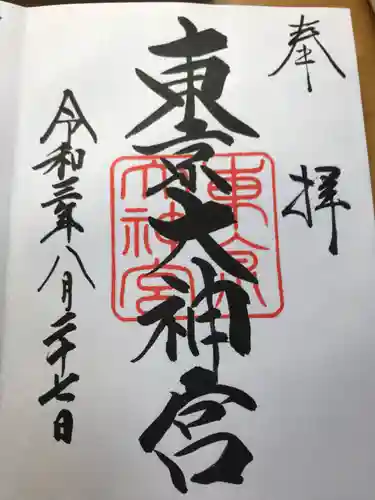 奉拝
東京大神宮
東京大神宮
令和三年八月二十七日